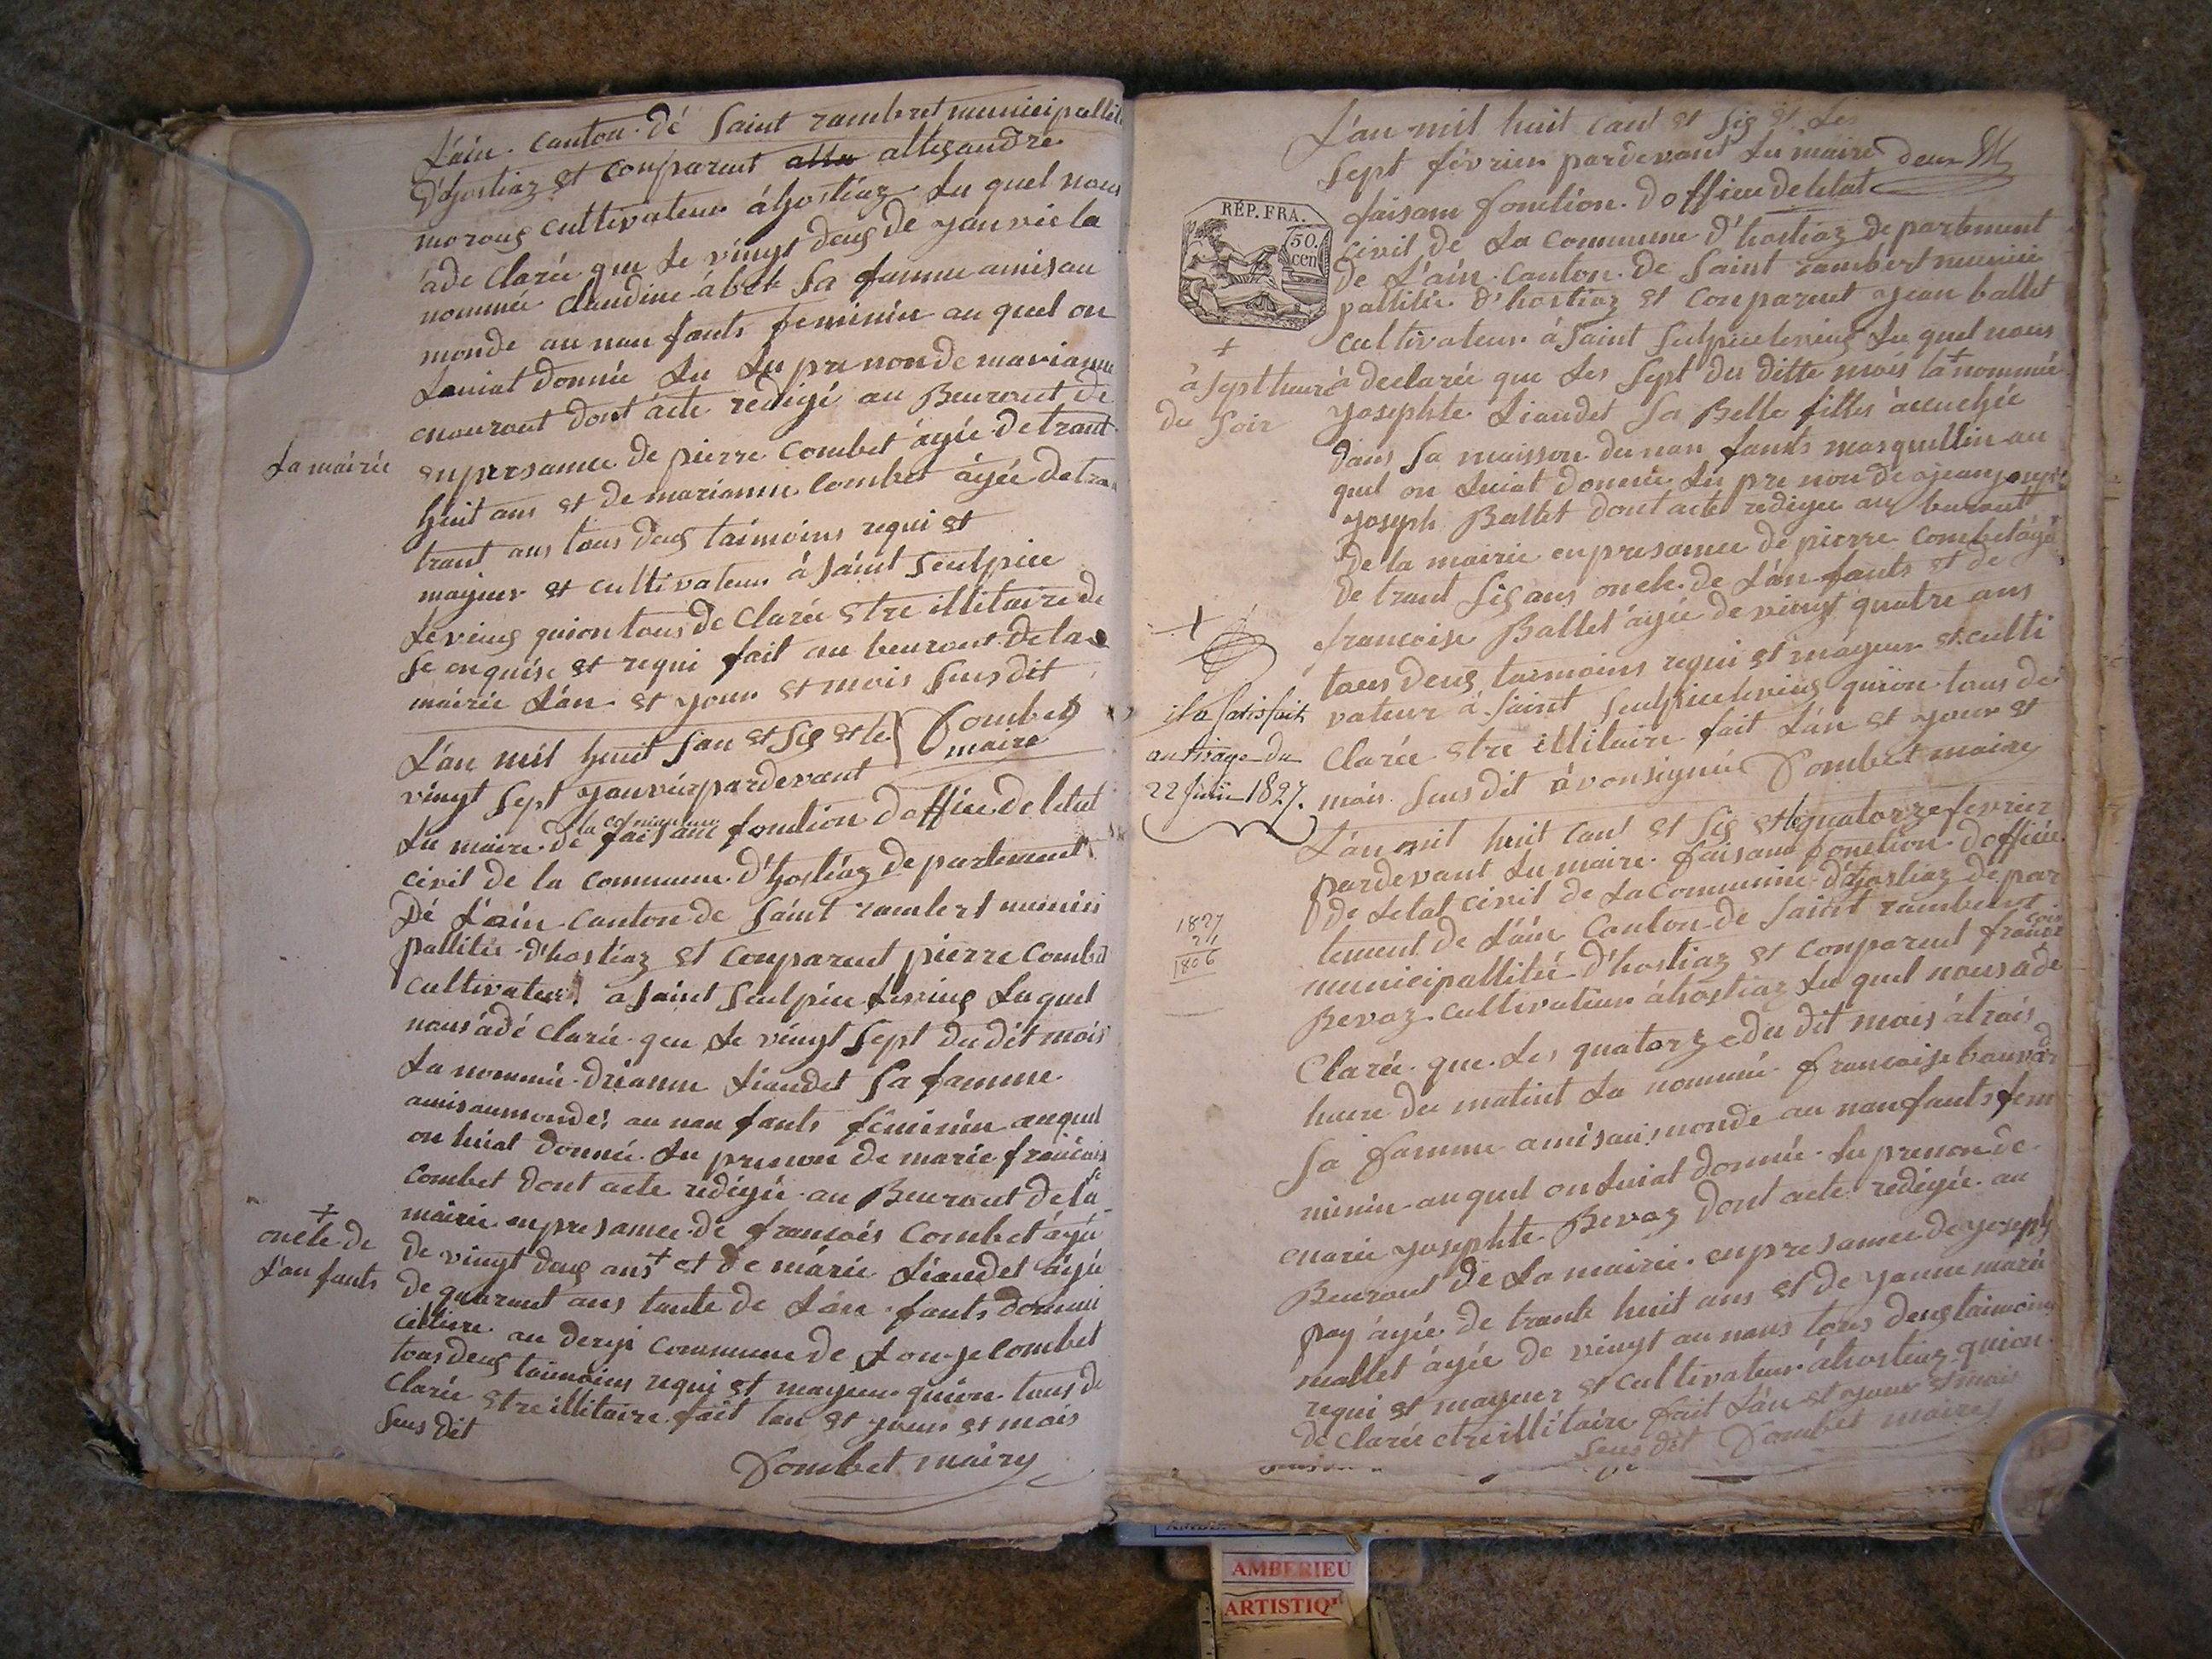 L'ain canton dé Saint rambret municipallité
D'hostiaz et conparant allexandre
moroug cultivateur à hostiaz Le quel nous
àde clarée que Le vingt deug de yanvie la
nommée claudine àbet Sa famme amis au
monde au nan fants feminin au quel on
Luniat donnée Lu Lu prenon de marianne
mourout dont àcte redigé au Beurout de
La mairie
enpresamce de pierre Combet âgée de trant
huit ans et de marianne Combet âgée de
trant ans tous deug taimoins requi et
mageur et cultivateur à Saint Seulpice
Levieug quiontous de Clarée Etre illitaire de
Se enquise et requi fait au beurout de la
mairie L'an et your et mois Sus dit
Combet
maire
L'an mil huit San et Sig et le
vingt Sept yanvier pardevant
la commune
Lu maire de faisant fonction D'officie de letat
civil de la Commune d'hostiaz departement
Dé L'ain canton de Saint rambert munici
pallitée d'hostiaz et Conparent pierre Combet
Cultivateur a Saint Seulpice Levieug Luquel
nous'àdé clarée que Le vingt Sept du dit mois
La nommée drianne Liaudet Sa famme
amisaumonde au nan fants féminin auquel
on luiat donnée Lu prenon de marie francois
se
Combet dont acte redigée au Beurout de la
mairie enpresamce de francois Combet âgée
+ oncle de L'an fants
de vingt deug ans + et de marie Liaudet âgée
de quarant ans tante de L'an fants domui
cilliere au dergi Commune de Lonjecombet
tous deug taimoins requi et mageur quion tous de
Clarée Etre illitaire fait l'an et your et mois
Sus dit
Combet mairy
L'an mil huit Cant et Sig et Les
Sept février pardevant Lu maire
faisam fonction d'officie de letat
RÉP. FRA.
50.
cen
civil de La Commune d'hostiaz departement
de L'ain canton de Saint rambert munici
pallitée d'hostiaz et Conparent Jean ballet
cultivateur à Saint Sulpice levieug Lu quel nous
+
à Sept heure
du Soir
à declarée que Les Sept du ditte mois la + nommée
Yosephte Liaudet Sa Belle filles àccuchée
dans Sa maisson du nan fants masquellin au
quel on Luiat donnée Lu prenon de Jean
Yoseph Ballet dont acte redigée au burout
de la mairie enpresamce de pierre Combet âgé
de trant Sig ans oncle de L'an fants et de
francoise Ballet âgée de vingt quatre ans
tous deug taimoins requi et mageur et culti
vateur à Saint Seulpice levieug quion tous de
Clarée Etre illitaire fait L'an et your et
mois Sus dit avonsignée Combet mairey
il a satisfait
au tirage du
22 Juin 1827.
L'an mil huit Cant et Sig et le quatorze fevrier
pardevant Lu maire faisant fonction d'officie
de Letat civil de La Commune d'hostiaz depar
1827
21
1806
tement de L'ain Canton de Saint rambert
municipallitée d'hostiaz et Conparent francois
Bevoz cultivateur àhostiaz Le quel nous a dé
Clarée que Les quatorze du dit mois à trois
heure du matint La nommée francoise bauvar
Sa famme amisau monde au nan fants fem
minin auquel on Luiat donnée Lu prenon de
marie yosephte Bevoz dont acte redigée au
Beurout de La mairie enpresamce de yoseph
pay âgée de trante huit ans et de yanne marie
mallet âgée de vingt au nans tous deug taimoins
requi et mageur et cultivateur àhostiaz quion
de clarée etre illitaire fait L'an et your et mois
Sus dit Combet mairey
AMBERIEU
ARTISTIQ